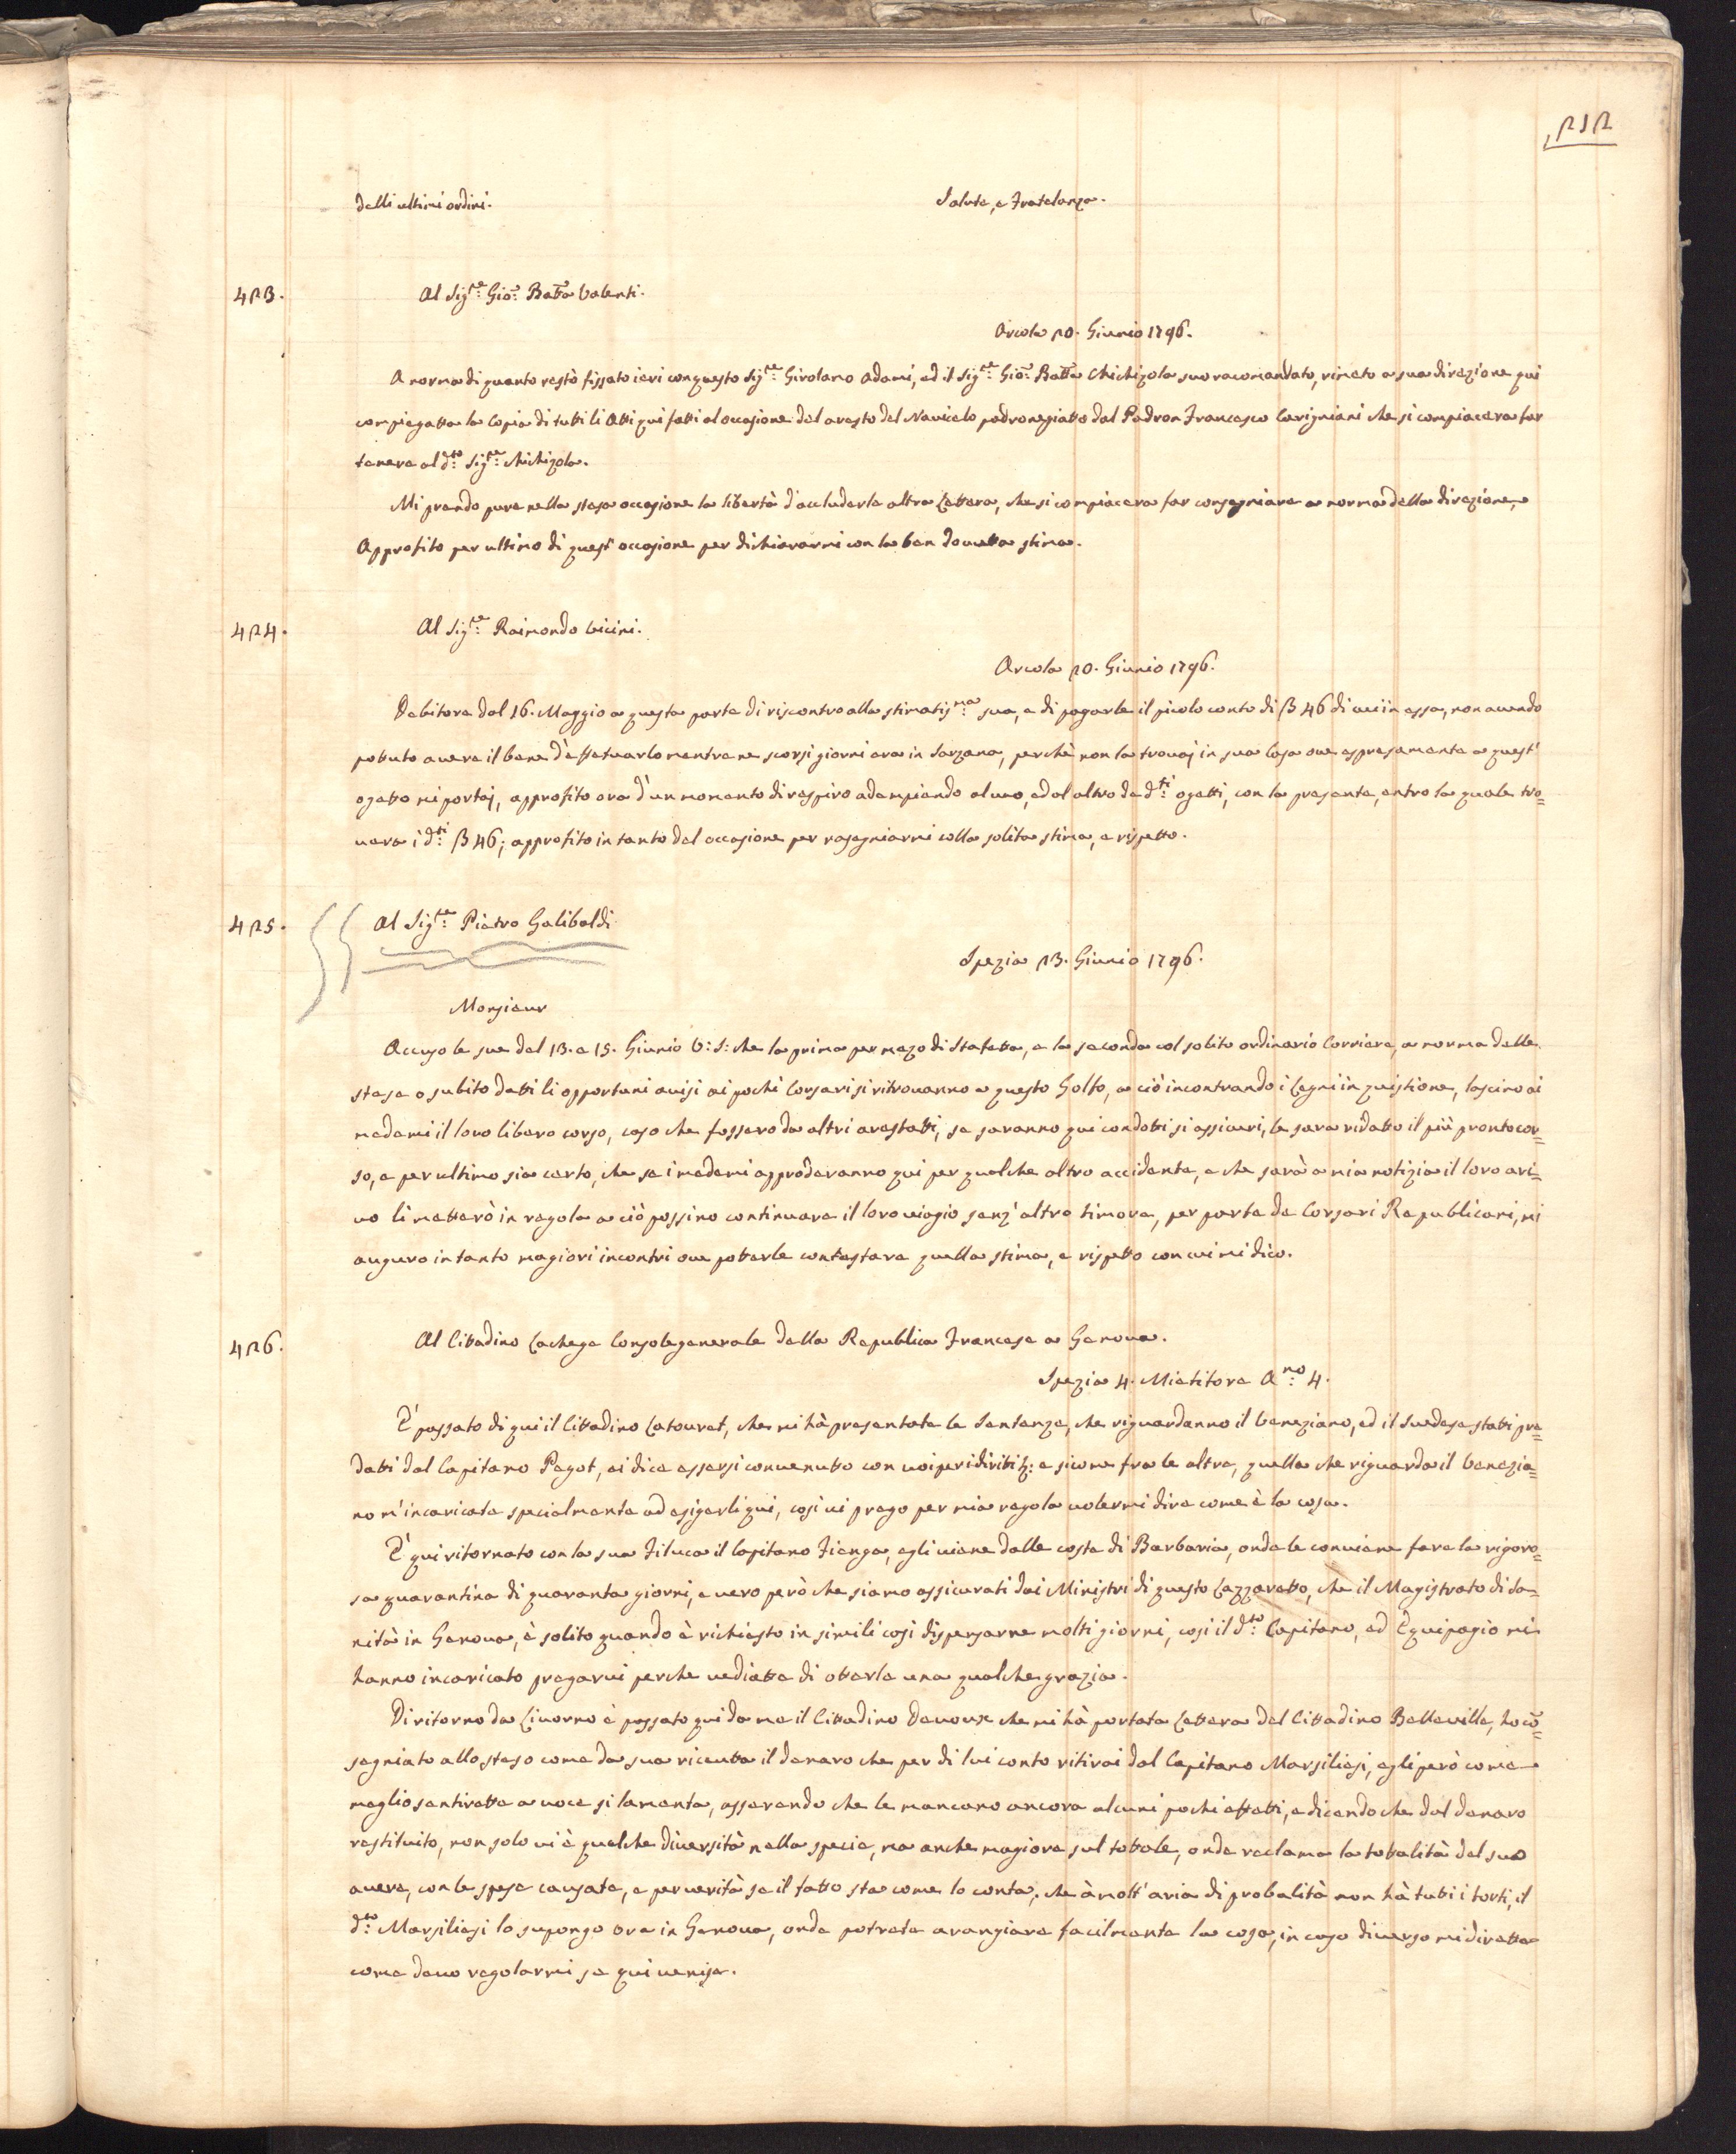 212
delli ultimi ordini. Salute, e Fratelanza.
423. Al Sig.re Gio: Batta Valenti.
Arcola 20. Giunio 1796.
A norma di quanto restò fissato ieri con questo Sig.re Girolamo Adami, ed il Sig.re Gio: Batta Chichizola suo racomandato, rimeto a sua direzione qui
compiegatta la Copia di tutti li Atti qui fatti al occasione del aresto del Navicelo padronegiatto dal Padron Francesco Carigniani che si compiacera far
tenere al d.to Sig.re Chichizola.
Mi prendo pure nella stesa occasione la libertà d'accluderle altra Lettera, che si compiacera far consegniare a norma della direzione, e
Approfito per ultimo di quest'occasione per dichiararmi con la ben dovutta stima.
424. Al Sig.re Raimondo Vicini.
Arcola 20. Giunio 1796.
Debitore dal 16. Maggio a questa parte di riscontro alla stimatis.ma sua, e di pagarle il picolo conto di ß 46 di cui in essa, non avendo
pottuto avere il bene d'effetuarlo mentre ne scorsi giorni era in Sarzana, perchè non la trovaj in sua Casa ove espresamente a quest'
ogetto mi portaj, approfito ora d'un momento di respiro adempiendo al uno, ed al altro de d.ti ogetti, con la presente, entro la quale tro=
vera i d.ti ß 46; approfito in tanto del occasione per rasegniarmi colla solita stima, e rispetto.
425. Al Sig.re Pietro Galibaldi
Spezia 23. Giunio 1796.
Monsieur
Accuso le sue del 13. e 15. Giunio V: S: che la prima per mezo di Stafetta, e la seconda col solito ordinario Corriere, a norma delle
stese o subito datti li opportuni avisi ai pochi Corsari si ritrovanno a questo Golfo, a ciò incontrando i Legni in quistione, lascino ai
medemi il loro libero corso, caso che fossero da altri arestatti, se saranno qui condotti si assicuri, le sara ridatto il più pronto cor=
so, e per ultimo sia certo, che se i medemi approderanno qui per qualche altro accidente, e che serà a mia notizia il loro ari=
vo li metterò in regola a ciò possino continuare il loro viagio senz'altro timore, per parte de Corsari Republicani, mi
auguro in tanto magiori incontri ove potterle contestare quella stima, e rispetto con cui mi dico.
426. Al Cittadino Lachege Console generale della Republica Francese a Genova.
Spezia 4. Mietitore A.no 4.
E' passato di qui il Cittadino Latouret, che mi hà presentate le Sentenze, che riguardanno il Veneziano, ed il Suedese statti pre=
datti dal Capitano Pegot, ei dice essersi convenutto con voi per i diritti &: e sicome fra le altre, quella che riguarda il Venezia=
no m'incaricate specialmente ad esigerli qui, così vi prego per mia regola volermi dire come è la cosa.
E' qui ritornato con la sua Filuca il Capitano Fienga, egli viene dalle coste di Barbaria, onde le conviene fare la rigoro=
sa quarantina di quaranta giorni, e vero però che siamo assicurati dai Ministri di questo Lazzaretto, che il Magistrato di Sa=
nità in Genova, è solito quando è richiesto in simili casi dispensarne molti giorni, così il d.to Capitano, ed Equipagio mi
hanno incaricato pregarvi perche vediatte di otterle una qualche grazia.
Di ritorno da Livorno è passato qui da me il Cittadino Devoux che mi hà portata Lettera del Cittadino Belleville, ho cõ=
segniato allo steso come da sua ricevuta il denaro che per di lui conto ritirai dal Capitano Marsiliesi, egli però come
meglio sentirette a voce si lamenta, asserendo che le mancano ancora alcuni pochi effetti, e dicendo che dal denaro
restituito, non solo vi è qualche diversità nella specie, ma anche magiore sul tottale, onde reclama la tottalità del suo
avere, con le spese causate, e per verità se il fatto sta come lo conta, che à molt'aria di probalità non hà tutti i torti, il
d.to Marsiliesi lo supongo ora in Genova, onde potrete arangiare facilmente la cosa, in caso diverso mi dirette
come devo regolarmi se qui venise.